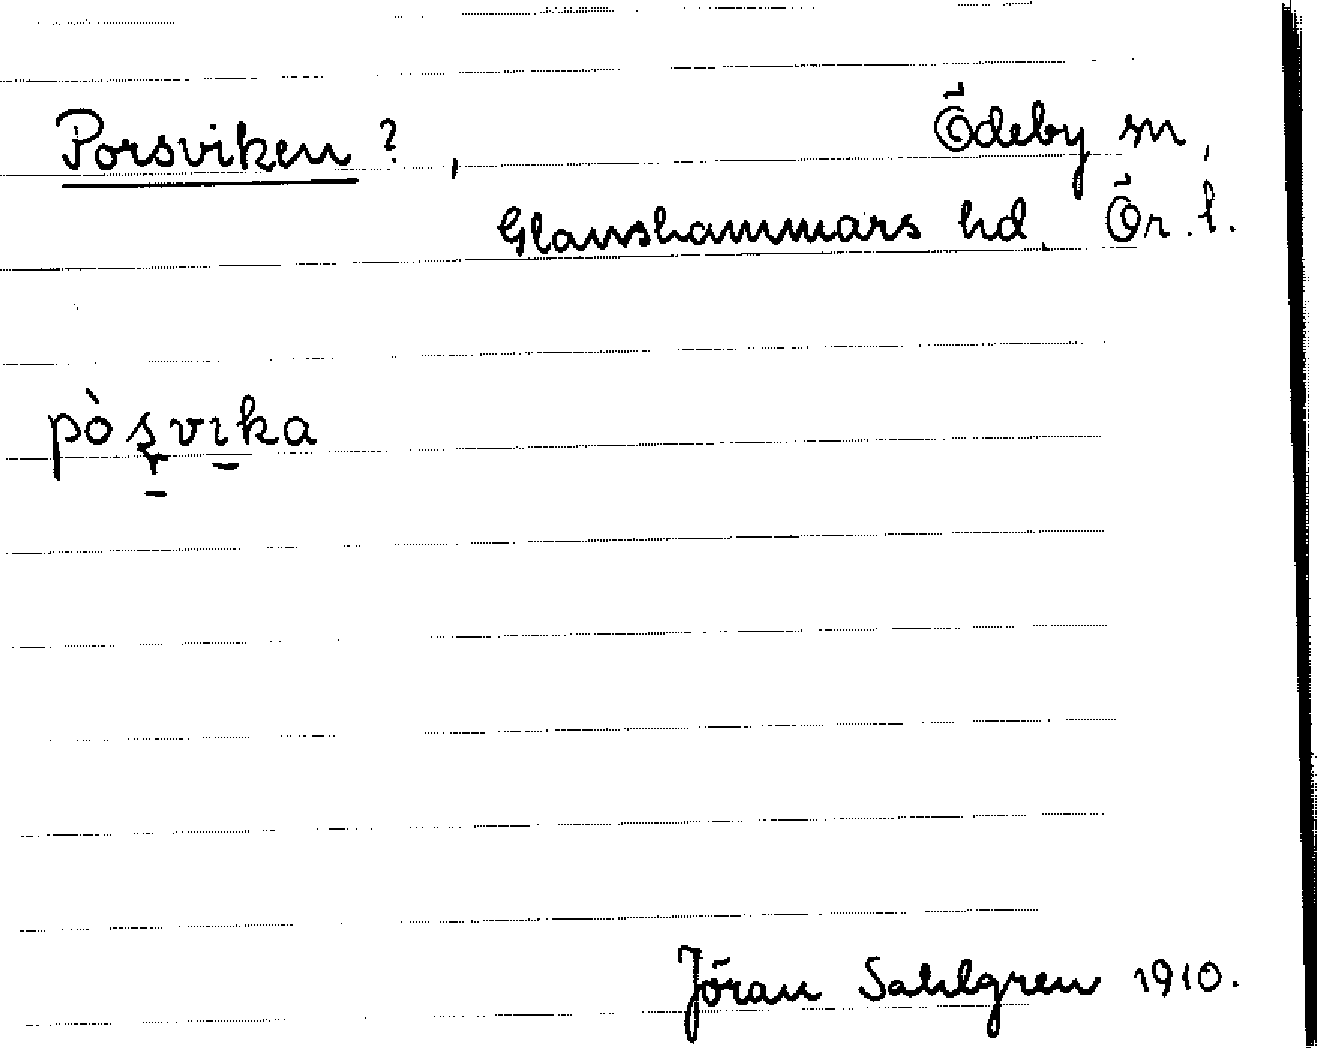 Porsviken ?, Ödeby sn,
Glanshammars hd. Ör. l.
pòṣvi̱ka
Jöran Sahlgren 1910.